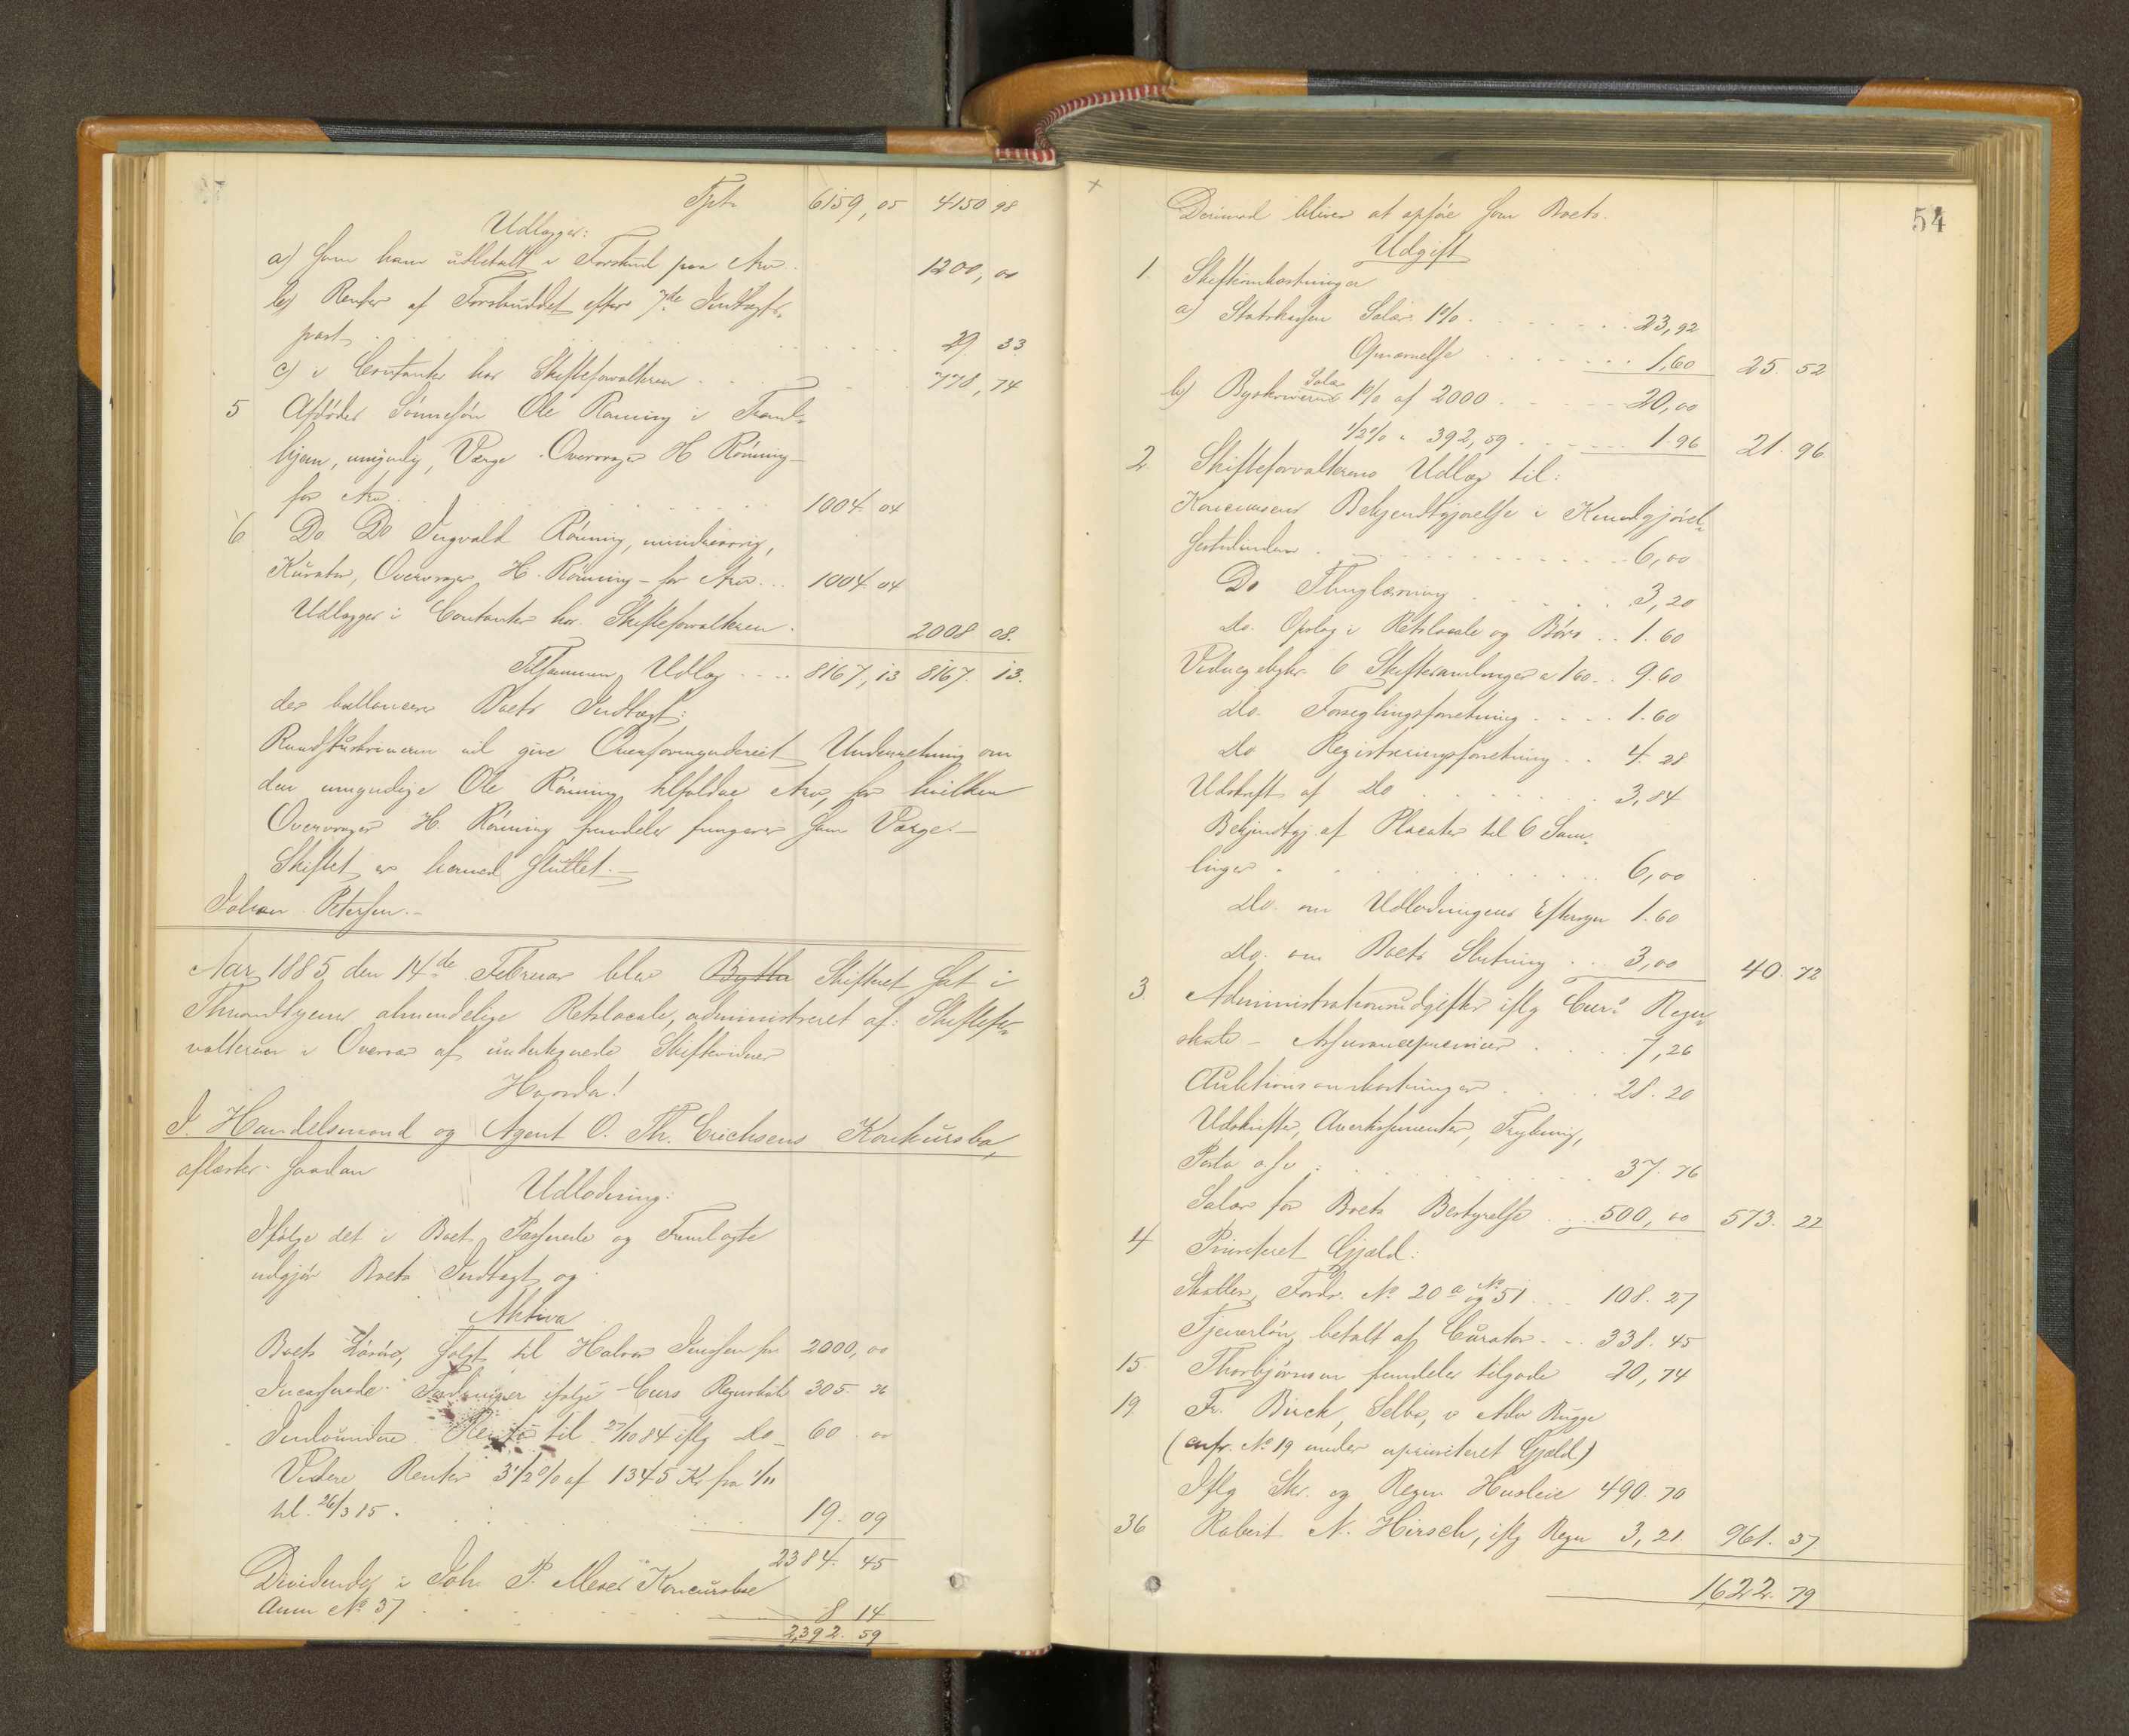 Tpt. 6159,05 4150 98
Udlægges:
a) Som ham udbetalt i Forskud paa Arv. 1200,00
b) Renter af Forskuddet efter 7de Indtægts-
post 29 33
c) i Contanter hos Skifteforvalteren 778,74
5 Afdødes Sønnesøn Ole Rønning i Trond-
hjem, umyndig, Værge Overvrager H Rønning –
for Arv. 1004. 04
6 Do Do Ingvald Rønning, mindreaarig,
Kurator, Overvrager H. Rønning – for Arv... 1004. 04
Udlægges i Contanter hos Skifteforvalteren. 2008 08.
Tilsammen Udlæg .... 8167,13 8167. 13.
der ballancerer Boets Indtægt;
Raadstuskriveren vil give Overformynderiet Underretning om
den umyndige Ole Rønning tilfaldne Arv, for hvilken
Overvrager H. Rønning fremdeles fungerer som Værge. –
Skiftet er hermed sluttet. –
Johan Petersen. –
Aar 1885 den 14de Februar blev Skifteret sat i
Throndhjems almindelige Retslocale, administreret af: Skiftefor-
valteren i Overvær af undertegnede Skiftevidner
Hvorda!
I. Handelsmand og Agent O. Th. Erichsens Konkursbo,
aflæstes saadan
Udlodning:
Ifølge det i Boet Passerede og Fremlagte
udgjør Boets Indtægt og
Aktiva
Boets Løsøre, solgt til Halvor Jenssen for 2000,00
Incasserede Fordringer ifølge Curs Regnskab 305. 36
Indvundne Renter til 27/10 84 iflg Do – 60. 00
Videre Renter 3 1/2 % af 1345 Kr. fra 1/11
til 26/3 85. 19. 09
2384. 45
Dividende i Joh. P. Concursbo
Anm No 37 8 14
2,392. 59
54
Derimod bliver at opføre som Boets.
Udgift
1. Skifteomkostninger
a) Statskassen Salær 1% 23,92
1,60 25. 52
b) Byskriverens Salær 1% af 2000 20,00
1/2 % " 392,59 1.96 21. 96
2. Skifteforvalterens Udlæg til:
Koncursens Bekjendtgjørelse i Kundgjørel-
sestidinden 6,00
Do Thinglæsning 3,20
do. Opslag i Retslocale og Børs .. 1.60
Vidnegebyhr. 6 Skiftesamlinger a 1 60 .. 9.60
do. Forseglingsforretning 1.60
do Registreringsforretning .. 4. 28
Udskrift af do 3,84
Bekjendtgj. af Placater til 6 Sam-
linger 6,00
do. om Udlodningens Eftersyn 1.60
do. om Boets Slutning ... 3,00 40. 72
3 Administrationsudgifter iflg Curs Regn-
skab – Assurancepræmier 7,26
Auktionsomkostninger 28. 20
Udskrifter, Avertissementer, Trykning,
Porto osv: 37. 76
Salær for Boets Bestyrelse 500,00 573. 22
4 Prioriteret Gjæld:
Skatter, Fordr. No 20 a og No 51 ... 108. 27
Tjenerløn, betalt af Curator 338. 45
15. Thorbjørnsen fremdeles tilgode 20,74
19 Fr. Birch, Selbo, v Adv Bugge
(cnfr. No 19 under uprioriteret Gjæld)
Iflg Skr. og Regn Husleie 490. 70
36 Robert N. Hirsch, iflg Regn 3,21. 961. 37
1622. 79